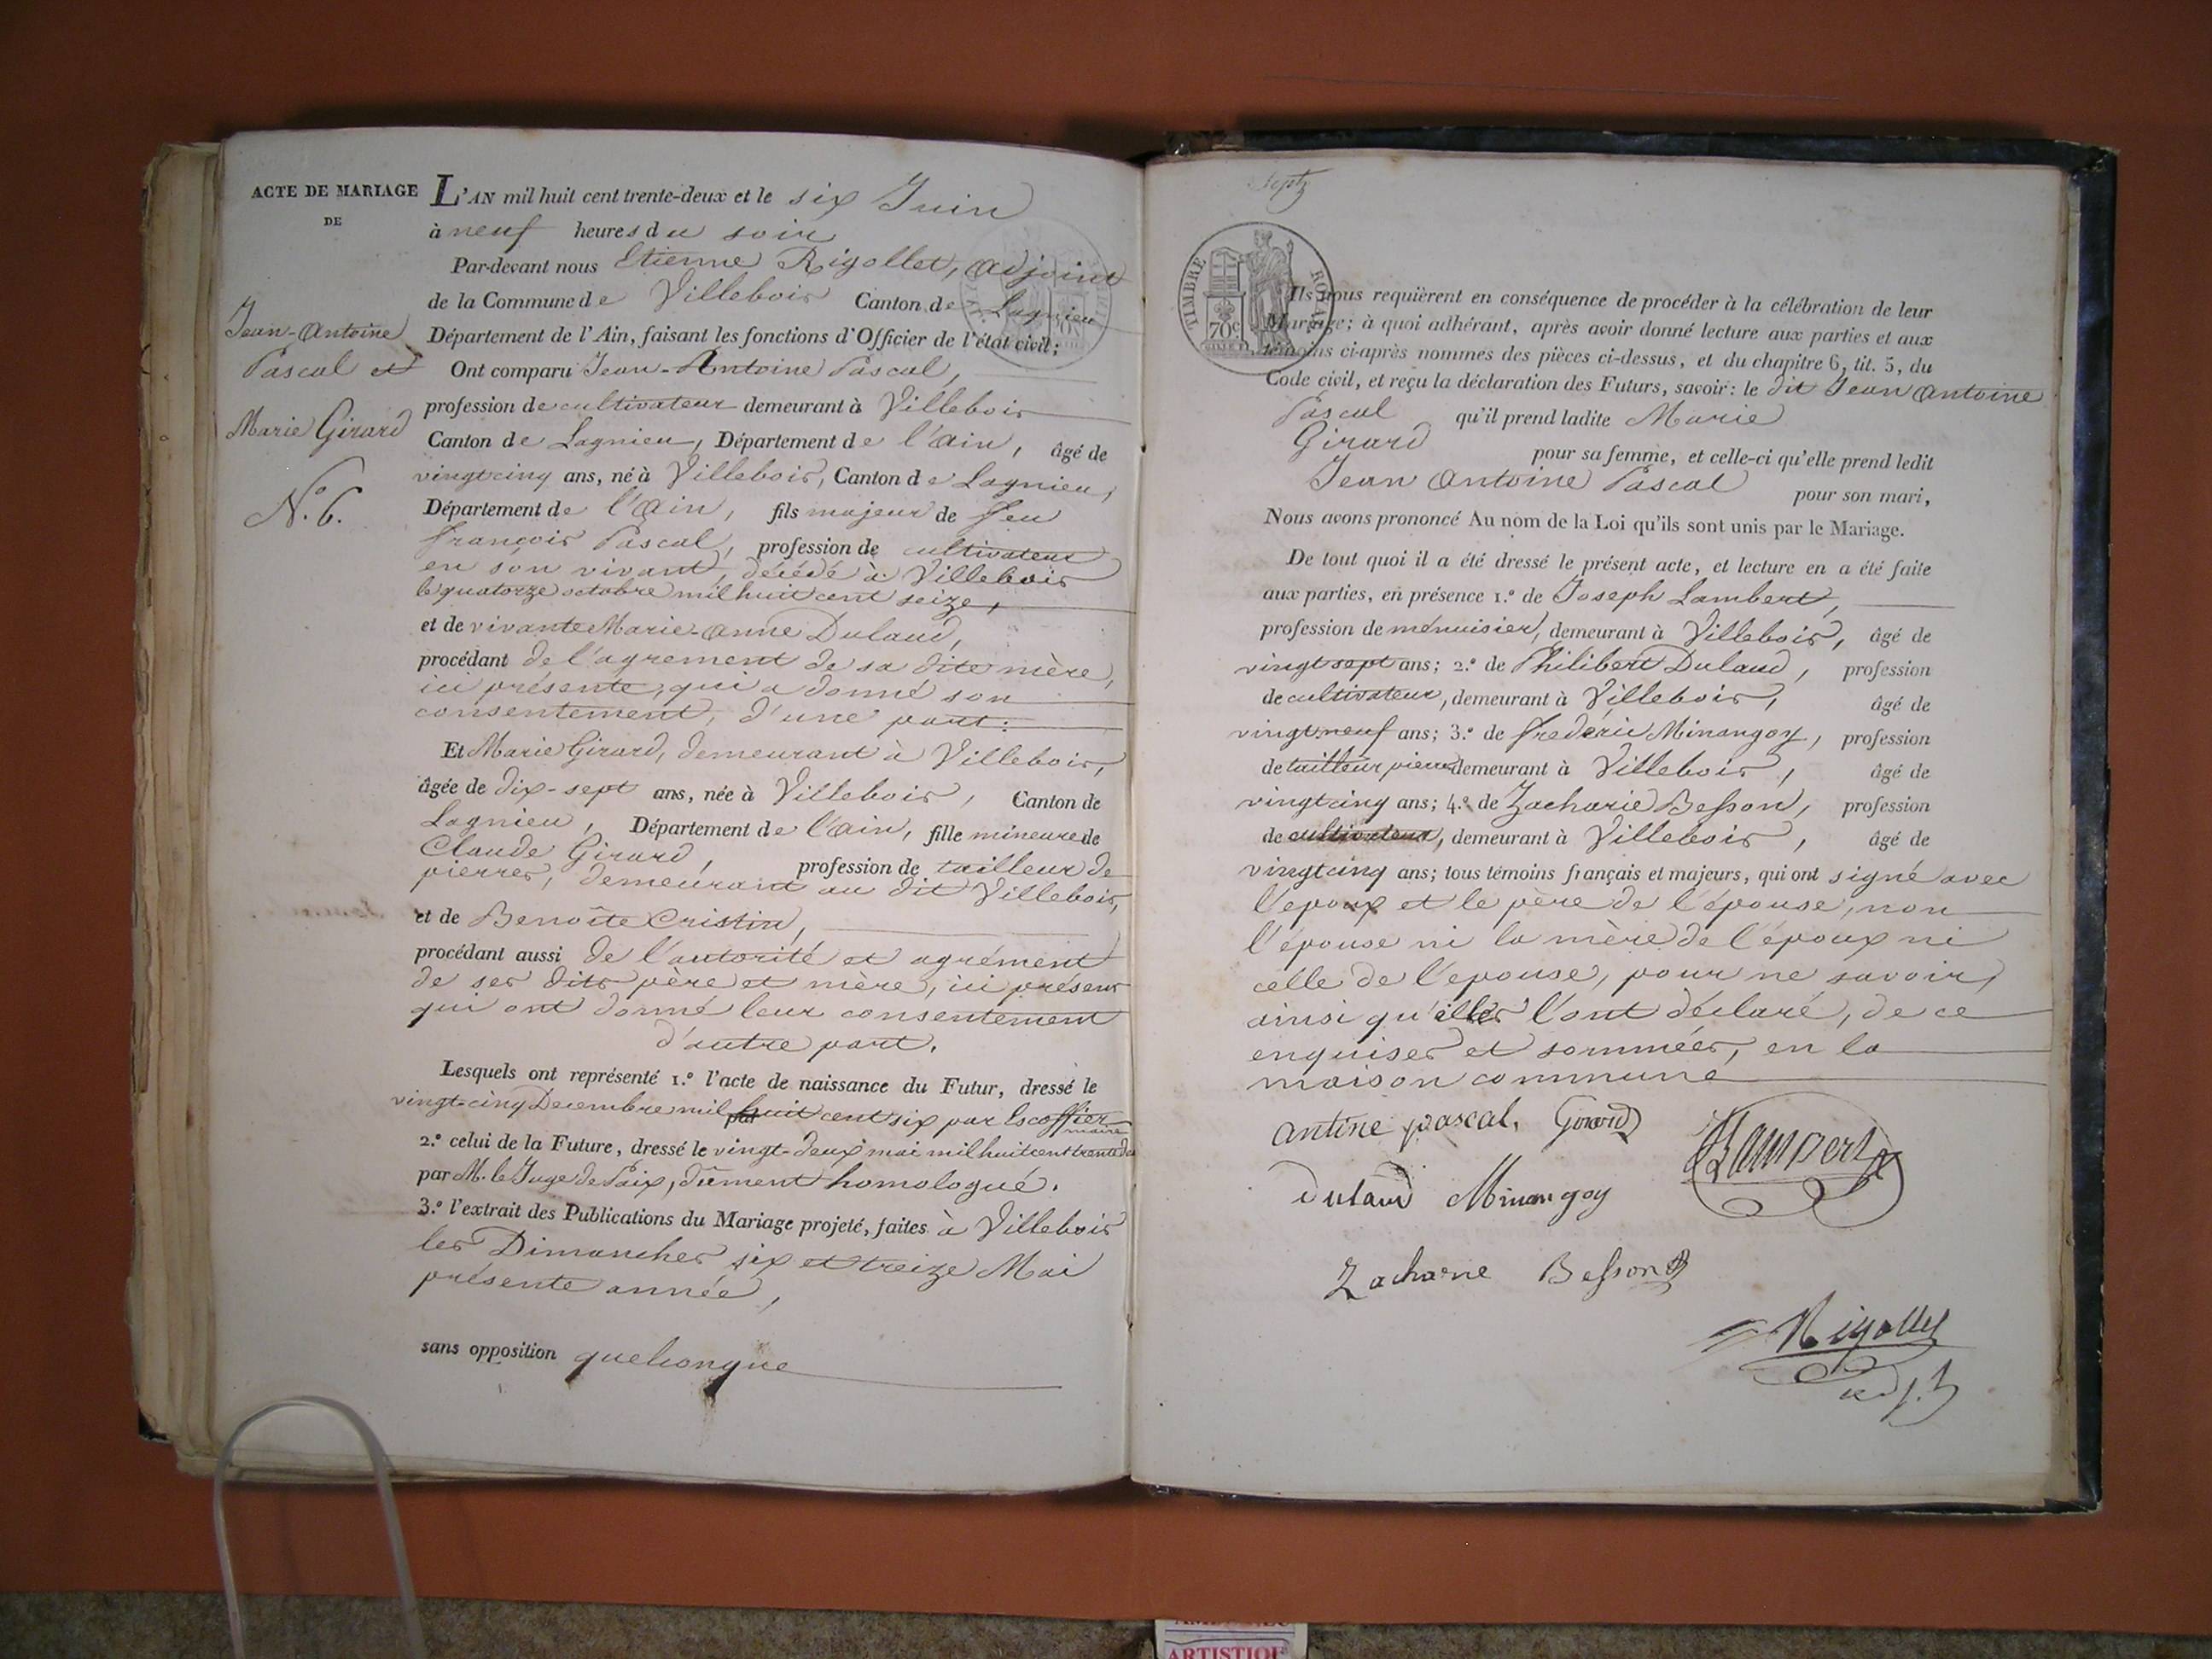 ACTE DE MARIAGE
DE
Jean-Antoine
Pascal et
Marie Girard
N.º 6.
L'AN mil huit cent trente-deux et le six Juin
à neuf heures du soir
Par-devant nous Etienne Rigollet, adjoint
de la Commune de Villebois Canton de Lagnieu
Département de l'Ain, faisant les fonctions d'Officier de l'état civil;
Ont comparu Jean-Antoine Pascal,
profession de cultivateur demeurant à Villebois
Canton de Lagnieu, Département de l'ain, âgé de
vingt cinq ans, né à Villebois, Canton de Lagnieu,
Département de l'ain, fils majeur de feu
françois Pascal, profession de cultivateur
en son vivant, décédé à Villebois
le quatorze octobre mil huit cent seize,
et de vivante Marie-anne Dulaud,
procédant de l'agrement de sa dite mère,
ici présente, qui a donné son
consentement, d'une part:
Et Marie Girard, demeurant à Villebois,
âgée de dix-sept ans, née à Villebois, Canton de
Lagnieu, Département de l'ain, fille mineure de
Claude Girard, profession de tailleur de
pierres, demeurant au dit Villebois,
et de Benoîte Cristin,
procédant aussi de l'autorité et agrément
de ses dits père et mère, ici présens
qui ont donné leur consentement
d'autre part.
Lesquels ont représenté 1.º l'acte de naissance du Futur, dressé le
vingt-cinq Decembre mil huit cent six par Escoffier
par maire
2.º celui de la Future, dressé le vingt-deux mai mil huit cent trente de
par M. le Juge de Paix, dûment homologué.
3.º l'extrait des Publications du Mariage projeté, faites à Villebois
les Dimanches six et treize Mai
présente année,
sans opposition quelconque
TIMBRE ROYAL
70c
Ils nous requièrent en conséquence de procéder à la célébration de leur
Mariage; à quoi adhérant, après avoir donné lecture aux parties et aux
témoins ci-après nommés des pièces ci-dessus, et du chapitre 6, tit. 5, du
Code civil, et reçu la déclaration des Futurs, savoir: le dit Jean antoine
Pascal qu'il prend ladite Marie
Girard pour sa femme, et celle-ci qu'elle prend ledit
Jean antoine Pascal pour son mari,
Nous avons prononcé Au nom de la Loi qu'ils sont unis par le Mariage.
De tout quoi il a été dressé le présent acte, et lecture en a été faite
aux parties, en présence 1.º de Joseph Lambert,
profession de menuisier, demeurant à Villebois, âgé de
vingt sept ans; 2.º de Philibert Dulaud, profession
de cultivateur, demeurant à Villebois, âgé de
vingt neuf ans; 3.º de frederic Minangoy, profession
de tailleur pierres demeurant à Villebois, âgé de
vingt cinq ans; 4.º de Zacharie Besson, profession
de cultivateur, demeurant à Villebois, âgé de
vingt cinq ans; tous témoins français et majeurs, qui ont signé avec
l'epoux et le père de l'épouse, non
l'épouse ni la mère de l'époux ni
celle de l'epouse, pour ne savoir,
ainsi qu'elles l'ont déclaré, de ce
enquises et sommées, en la
maison commune
antine pascal. Girard
Lambert
Dulaud Minangoy
Zacharie Besson
Rigollet
adj.t
ARTISTIQUE